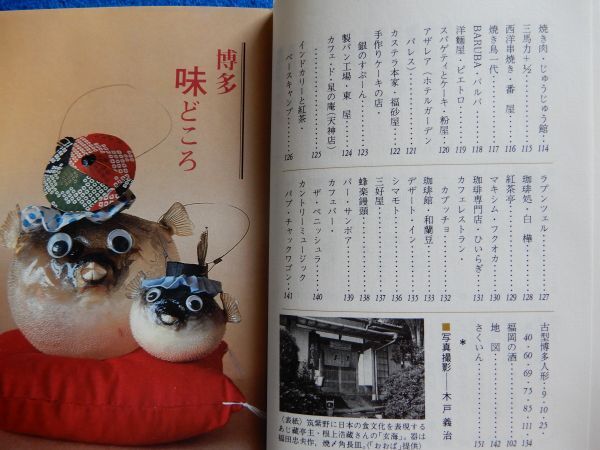 博多
味どころ
焼き肉・じゅうじゅう館・114
三馬力+½……115
西洋串焼き・番 屋……116
焼き鳥一代……117
BARUBA・バルバ……118
洋麺屋・ピエトロ……119
スパゲティとケーキ・粉屋・120
アザレア(ホテルガーデン
パレス)……121
カステラ本家・福砂屋……122
手作りケーキの店・
銀のすぷーん……123
製パン工場・東 屋……124
カフェ・ド・星の庵(天神店)
……125
インドカリーと紅茶・
ベースキャンプ……126
ラプンツェル……127
珈琲処・白 樺……128
紅茶亭……129
マキシム・フクオカ……130
珈琲専門店・ひいらぎ……131
カフェレストラン・
カプッチョ……132
珈琲館 和蘭豆……133
デザート・イン……135
シマモト……136
三好屋……137
蜂楽饅頭……138
バー・サンボア……139
カフェバー・
ザ・ベニッシュラ……140
カントリーミュージック
パブ・チャックワゴン……141
古型博多人形……9・10・25・
40・60・69・75・85・111
福岡の酒……134
地 図……102
さくいん……142
151
*
■写真撮影──木戸義治
〈表紙〉筑紫野に日本の食文化を表現する
あじ蔵亭主・根上浩蔵さんの「玄海」。器は
福田忠夫作、焼〆角長皿、(「おおば」提供)